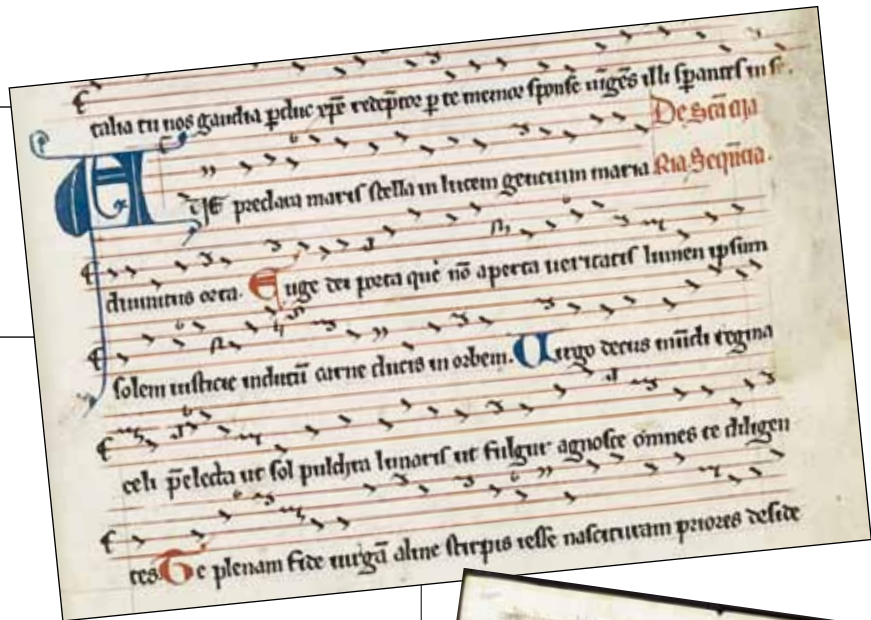 talia tu nos gaudia ꝑduc xp̄e redēptor ꝑ te memor sponse
De scā ma
preclara maris stella in lucem gentium maria Ria. Sequēcia.
diuinitus orta. Euge dei porta que nō aperta ueritatis lumen ipsum
solem iusticie indutū carne ducis in orbem. Uirgo decus mūdi regina
celi p̄electa ut sol pulchra lunaris ut fulgur agnosce omnes te diligen
tes. Te plenam fide uirgā alme stirpis iesse nascituram priores deside